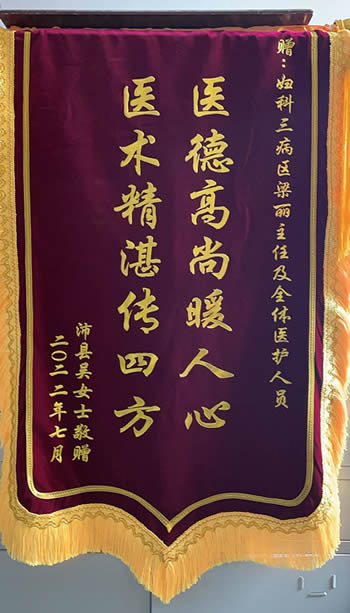 赠：妇科三病区梁丽主任及全体医护人员
医德高尚暖人心
医术精湛传四方
沛县吴女士敬赠
二〇二二年七月